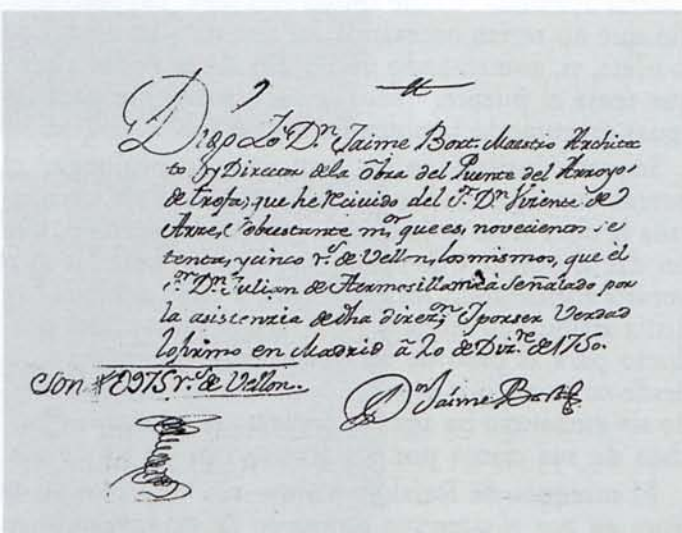 Digo Yo Dn. Jaime Bort. Maestro Architec
to y Director dela õbra del Puente del Arroyo
de trofa; que he Recivido del Sr. Dn. Vizente de
Arze, Sobrestante mor. que es, novecientos se
tenta, y cinco rs. de Vellon, los mismos, que el
Sr. Dn. Julian de Hermosilla meà Señalado por
la asistenzia dedha direzon. Y por ser Verdad
lo firmo en Madrid â 20 de Dizre. de 1750.
Son #E975 rs. de Vellon.
Don Jaime Bort